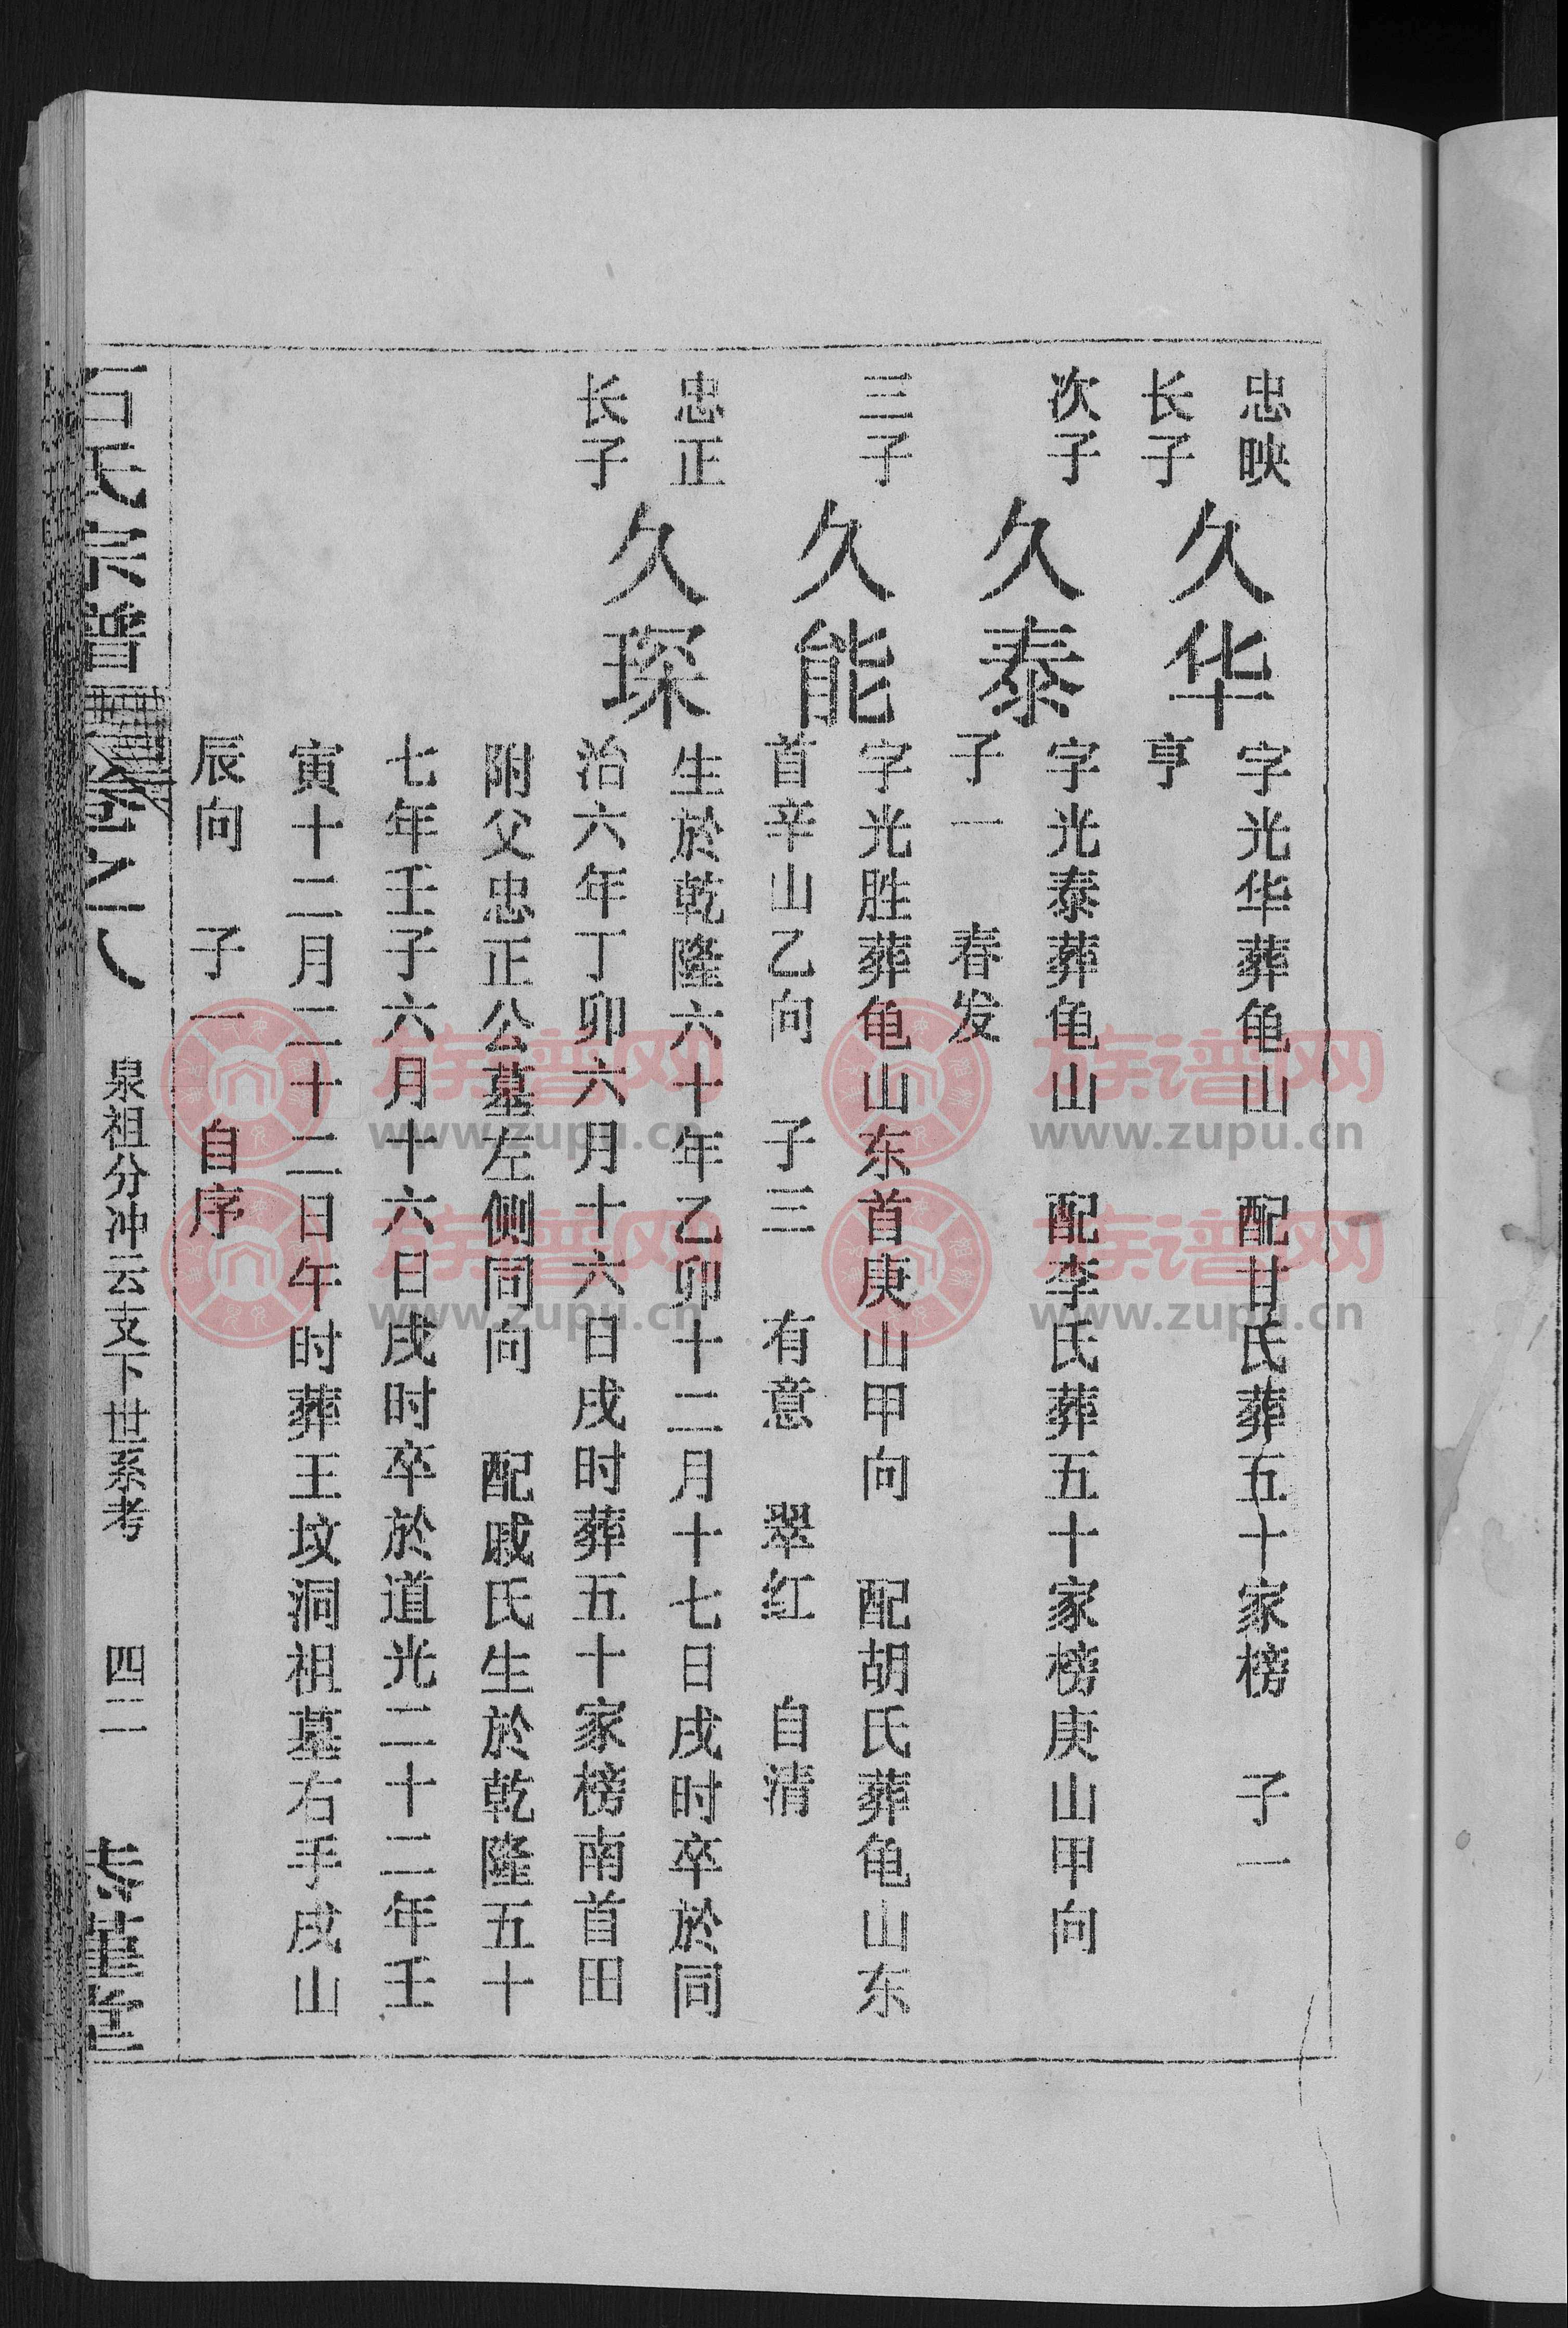 忠映
长子
久华
字光华葬龟山 配甘氏葬五十家榜 子一
亨
次子
久泰
字光泰葬龟山 配李氏葬五十家榜庚山甲向
子一 春发
三子
久能
字光胜葬龟山东首庚山甲向 配胡氏葬龟山东
首辛山乙向 子三 有意 翠红 自清
忠正
长子
久琛
生於乾隆六十年乙卯十二月十七日戌时卒於同
治六年丁卯六月十六日戌时葬五十家榜南首田
附父忠正公墓左侧同向 配戚氏生於乾隆五十
七年壬子六月十六日戌时卒於道光二十二年壬
寅十二月二十二日午时葬王坟洞祖墓右手戌山
辰向 子一 自序
泉祖分冲云支下世系考
四二
族谱网
www.zupu.cn
族谱网
www.zupu.cn
族谱网
www.zupu.cn
族谱网
www.zupu.cn